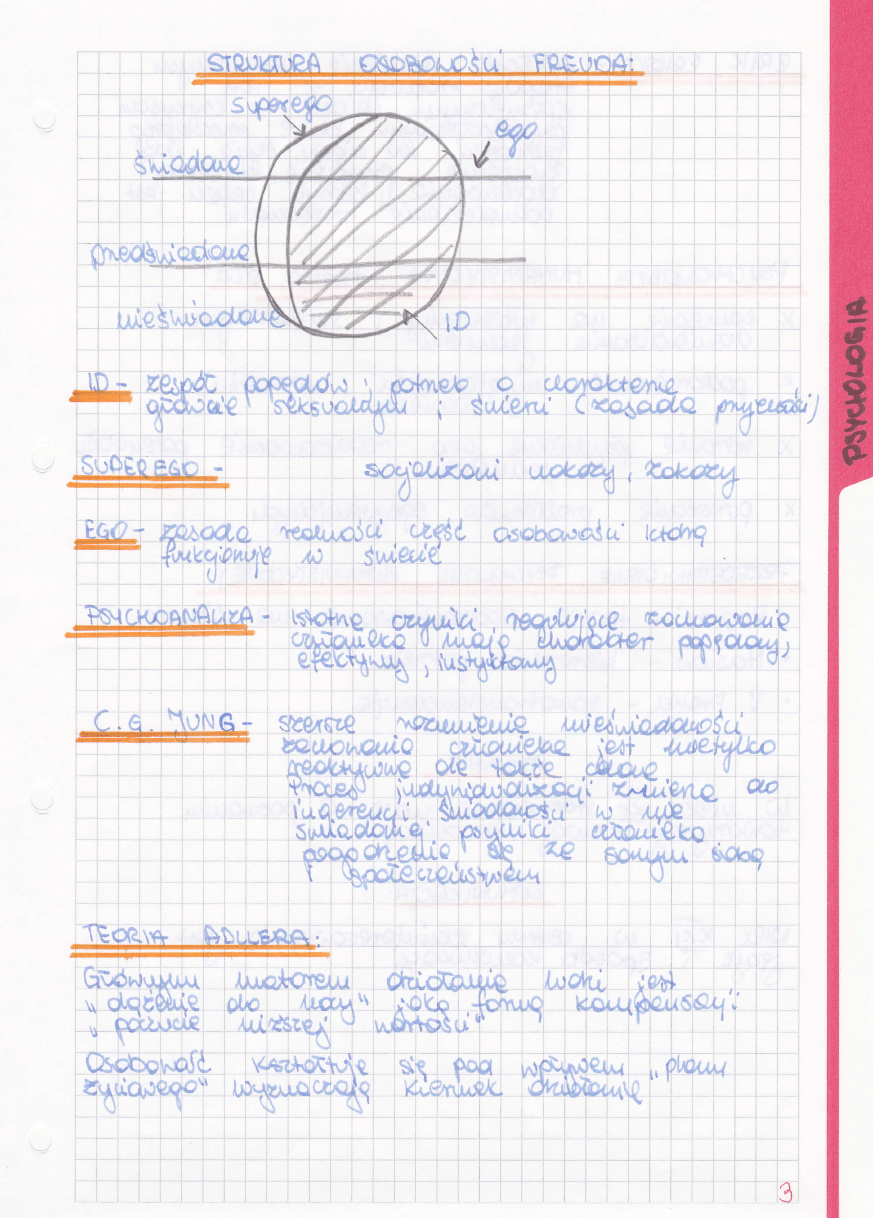 STRUKTURA OSOBOWOŚCI FREUDA:
superego
ego
świadome
przedświadome
nieświadome
ID
ID - zespół popędów i potrzeb o charakterze
głównie seksualnym i śmierci (zasada przyjemności)
SUPEREGO - socjalizowani nakazy, zakazy
EGO - zasada realności część osobowości którą
funkcjonuje w świecie
PSYCHOANALIZA - Istotne czynniki regulujące zachowanie
człowieka mają charakter popędowy,
efektywny, instyktowny
C. G. JUNG - szersze rozumienie nieświadomości
zachowania człowieka jest nietylko
reaktywne ale także celowe
Proces indywidualizacji zmierza do
ingerencji świadomości w nie
świadomej psychiki człowieka
pogodzenie się ze samym sobą
i społeczeństwem
TEORIA ADLLERA:
Głównym motorem działania ludzi jest
„dążenie do mocy" jako formą kompensacji
„poczucie niższej wartości"
Osobowość kształtuje się pod wpływem „planu
życiowego" wyznaczają kierunek działanie
3
PSYCHOLOGIA